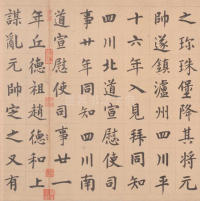 之珍珠堡降其将元
帥遂鎮瀘州四川平
十六年入見拜同知
四川北道宣慰使司
事廿年同知四川南
道宣慰使司事廿一
年丘德祖趙德和上
謀亂元帥定之又有